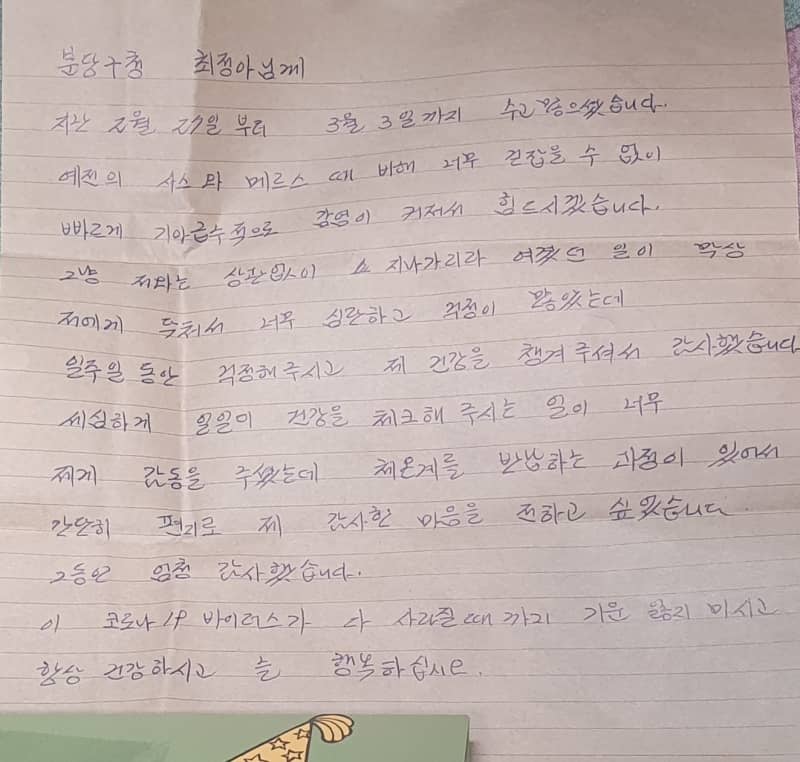 분당구청 최정아님께
지난 2월 27일 부터 3월 3일까지 수고많으셨습니다.
예전의 사스와 메르스 때 비해 너무 걷잡을 수 없이
빠르게 기아급수적으로 감염이 커져서 힘드시겠습니다.
그냥 저와는 상관없이 스쳐지나가리라 여겼던 일이 막상
저에게 닥쳐서 너무 심란하고 걱정이 많았는데
일주일 동안 걱정해주시고 제 건강을 챙겨주셔서 감사했습니다
세심하게 일일이 건강을 체크해 주시는 일이 너무
제게 감동을 주셨는데 체온계를 반납하는 과정이 있어서
간단히 편지로 제 감사한 마음을 전하고 싶었습니다.
그동안 엄청 감사했습니다.
이 코로나19 바이러스가 다 사라질때 까지 기운 잃지 마시고
항상 건강하시고 늘 행복하십시요.